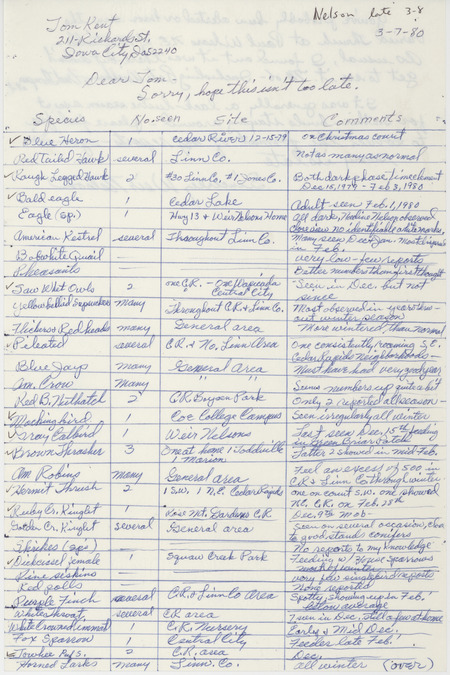 Nelson late 3-8
3-7-80
Tom Kent
211-Richards St.
Iowa City Ia 52240
Dear Tom-
Sorry, hope this isn't too late.
Species No. seen Site Comments
✓ Blue Heron 1 Cedar River 12-15-79 on Christmas count
Red tailed Hawk several Linn Co. Not as many as normal
✓ Rough Legged Hawk 2 #30 Linn Co, #1 Jones Co. Both dark phase, time element
Dec 15, 1979 - Feb 3, 1980
✓ Bald eagle 1 Cedar Lake Adult seen Feb. 1, 1980
Eagle (sp.) 1 Hwy 13 & Weir Nelsons Home All dark, Nadine Nelson observed
no identifiable marks,
American Kestrel several Throughout Linn Co. Many seen Dec.
in Feb.
Bobwhite Quail — very low - few reports
Pheasants — better number than first thought
✓ Saw Whet Owls 2 one C.R. - one Central City Seen in Dec. but not
since
✓ Yellow bellied Sapsuckers many Throughout C.R. & Linn Co. Most observed in years
winter season
Red heads many General area More wintered, than normal
✓ Pileated several C.R. & No. Linn Area One consistently roaming S.E.
Cedar Rapids Neighborhoods -
Blue Jays many General area Must have had very good year
Am. Crow Many " " Seems numbers up quite a bit
Red B. Nuthatch 2 C.R. Park Only 2 reported all season -
✓ Mockingbird 1 Coe College Campus Seen irregularly all winter
✓ Gray Catbird 1 Weir Nelsons Last seen Dec. 15th feeding
in Green Briar Patch
✓ Brown Thrasher 3 One at home 1 Toddville
1 Marion Latter 2 showed in mid Feb.
Am Robins many General area Feel an excess of 500 in
C.R. & Linn Co through winter
✓ Hermit Thrush 2 1 S.W. 1 N.E. Cedar Rapids one on count S.W. one showed
N.E. C.R. on Feb. 28th
✓ Ruby Cr. Kinglet 1 C.R. Dec. 9th
Golden Cr. Kinglet several General area Seen on several occasion, close
to good stands conifers
Shrikes (sp.) — No reports to my knowledge
✓ Dickcissel, female 1 Squaw Creek Park Feeding w/ House Sparrows
month of winter
Pine siskins — very low single bird reports
Red polls — None reported
Purple Finch several C.R. & Linn Co Area Spotty, showing up in Feb.
below average
✓ Whitethroat several CR area
White Crowned immat 1 C.R. Nursery Early & Mid Dec.
Fox Sparrow 1 Central City Feeder late Feb.
✓ Towhee Ruf S. 2 C.R. area Dec.
Horned Larks many Linn. Co. all winter (over)